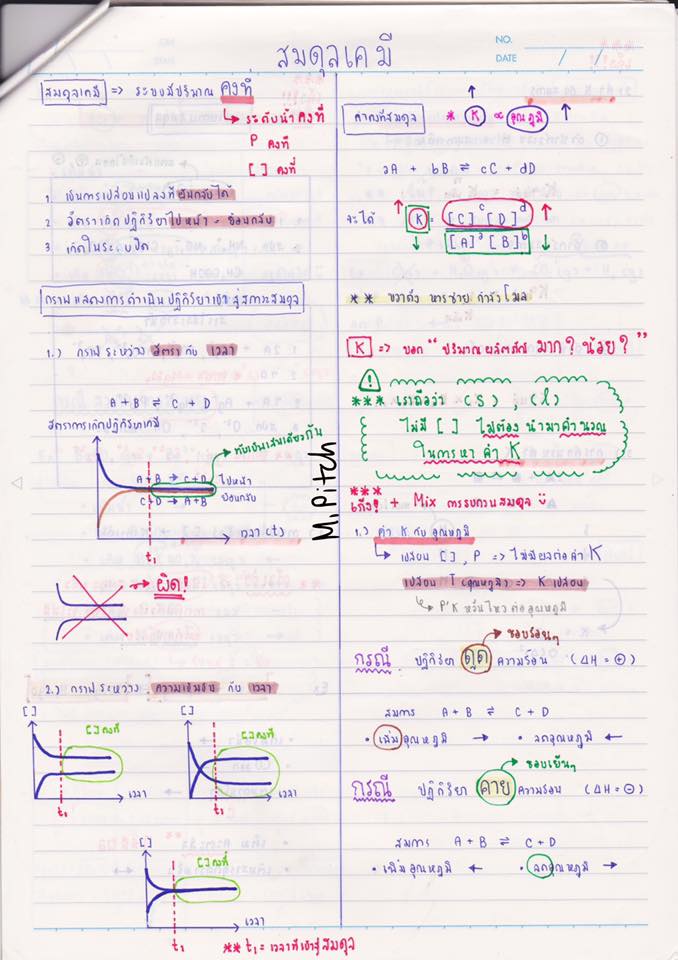 สมดุลเคมี
NO.
DATE / /
สมดุลเคมี => ระบบมีปริมาณ คงที่
ระดับน้ำคงที่
P คงที่
[ ] คงที่
1. เป็นการเปลี่ยนแปลงที่ผันกลับได้
2. อัตราเกิดปฏิกิริยาไปหน้า = ย้อนกลับ
3. เกิดในระบบปิด
กราฟแสดงการดำเนินปฏิกิริยาเข้าสู่สภาวะสมดุล
1.) กราฟระหว่าง อัตรา กับ เวลา
A + B ⇌ C + D
อัตราการเกิดปฏิกิริยาเคมี
ทับเป็นเส้นเดียวกัน
A+B → C+D ไปหน้า
C+D → A+B ย้อนกลับ
เวลา (t)
t₁
ผิด!
2.) กราฟระหว่าง ความเข้มข้น กับ เวลา
[ ]
[ ] คงที่
เวลา
t₁
[ ]
[ ] คงที่
เวลา
t₁
[ ]
[ ] คงที่
เวลา
t₁
** t₁ = เวลาที่เข้าสู่สมดุล
M.pitch
ค่าคงที่สมดุล * K ∝ อุณหภูมิ ↑
aA + bB ⇌ cC + dD
จะได้ ↑ K = [C]ᶜ [D]ᵈ ↑
↓ [A]ᵃ [B]ᵇ ↓
** ขวาตั้ง หารซ้าย กำลังโมล
K => บอก "ปริมาณผลิตภัณฑ์ มาก? น้อย?"
!
*** เราถือว่า (s) , (l)
ไม่มี [ ] ไม่ต้อง นำมาคำนวณ
ในการหา ค่า K
***
เก็ง! + Mix การรบกวนสมดุล
1.) ค่า K กับอุณหภูมิ
เปลี่ยน [ ], P => ไม่มีผลต่อค่า K
เปลี่ยน T (อุณหภูมิ) => K เปลี่ยน
P'K หวั่นไหวต่ออุณหภูมิ
ชอบร้อนๆ
กรณี ปฏิกิริยา ดูด ความร้อน (ΔH = ⊕)
สมการ A + B ⇌ C + D
• เพิ่มอุณหภูมิ → • ลดอุณหภูมิ ←
ชอบเย็นๆ
กรณี ปฏิกิริยา คาย ความร้อน (ΔH = ⊖)
สมการ A + B ⇌ C + D
• เพิ่มอุณหภูมิ ← • ลดอุณหภูมิ →